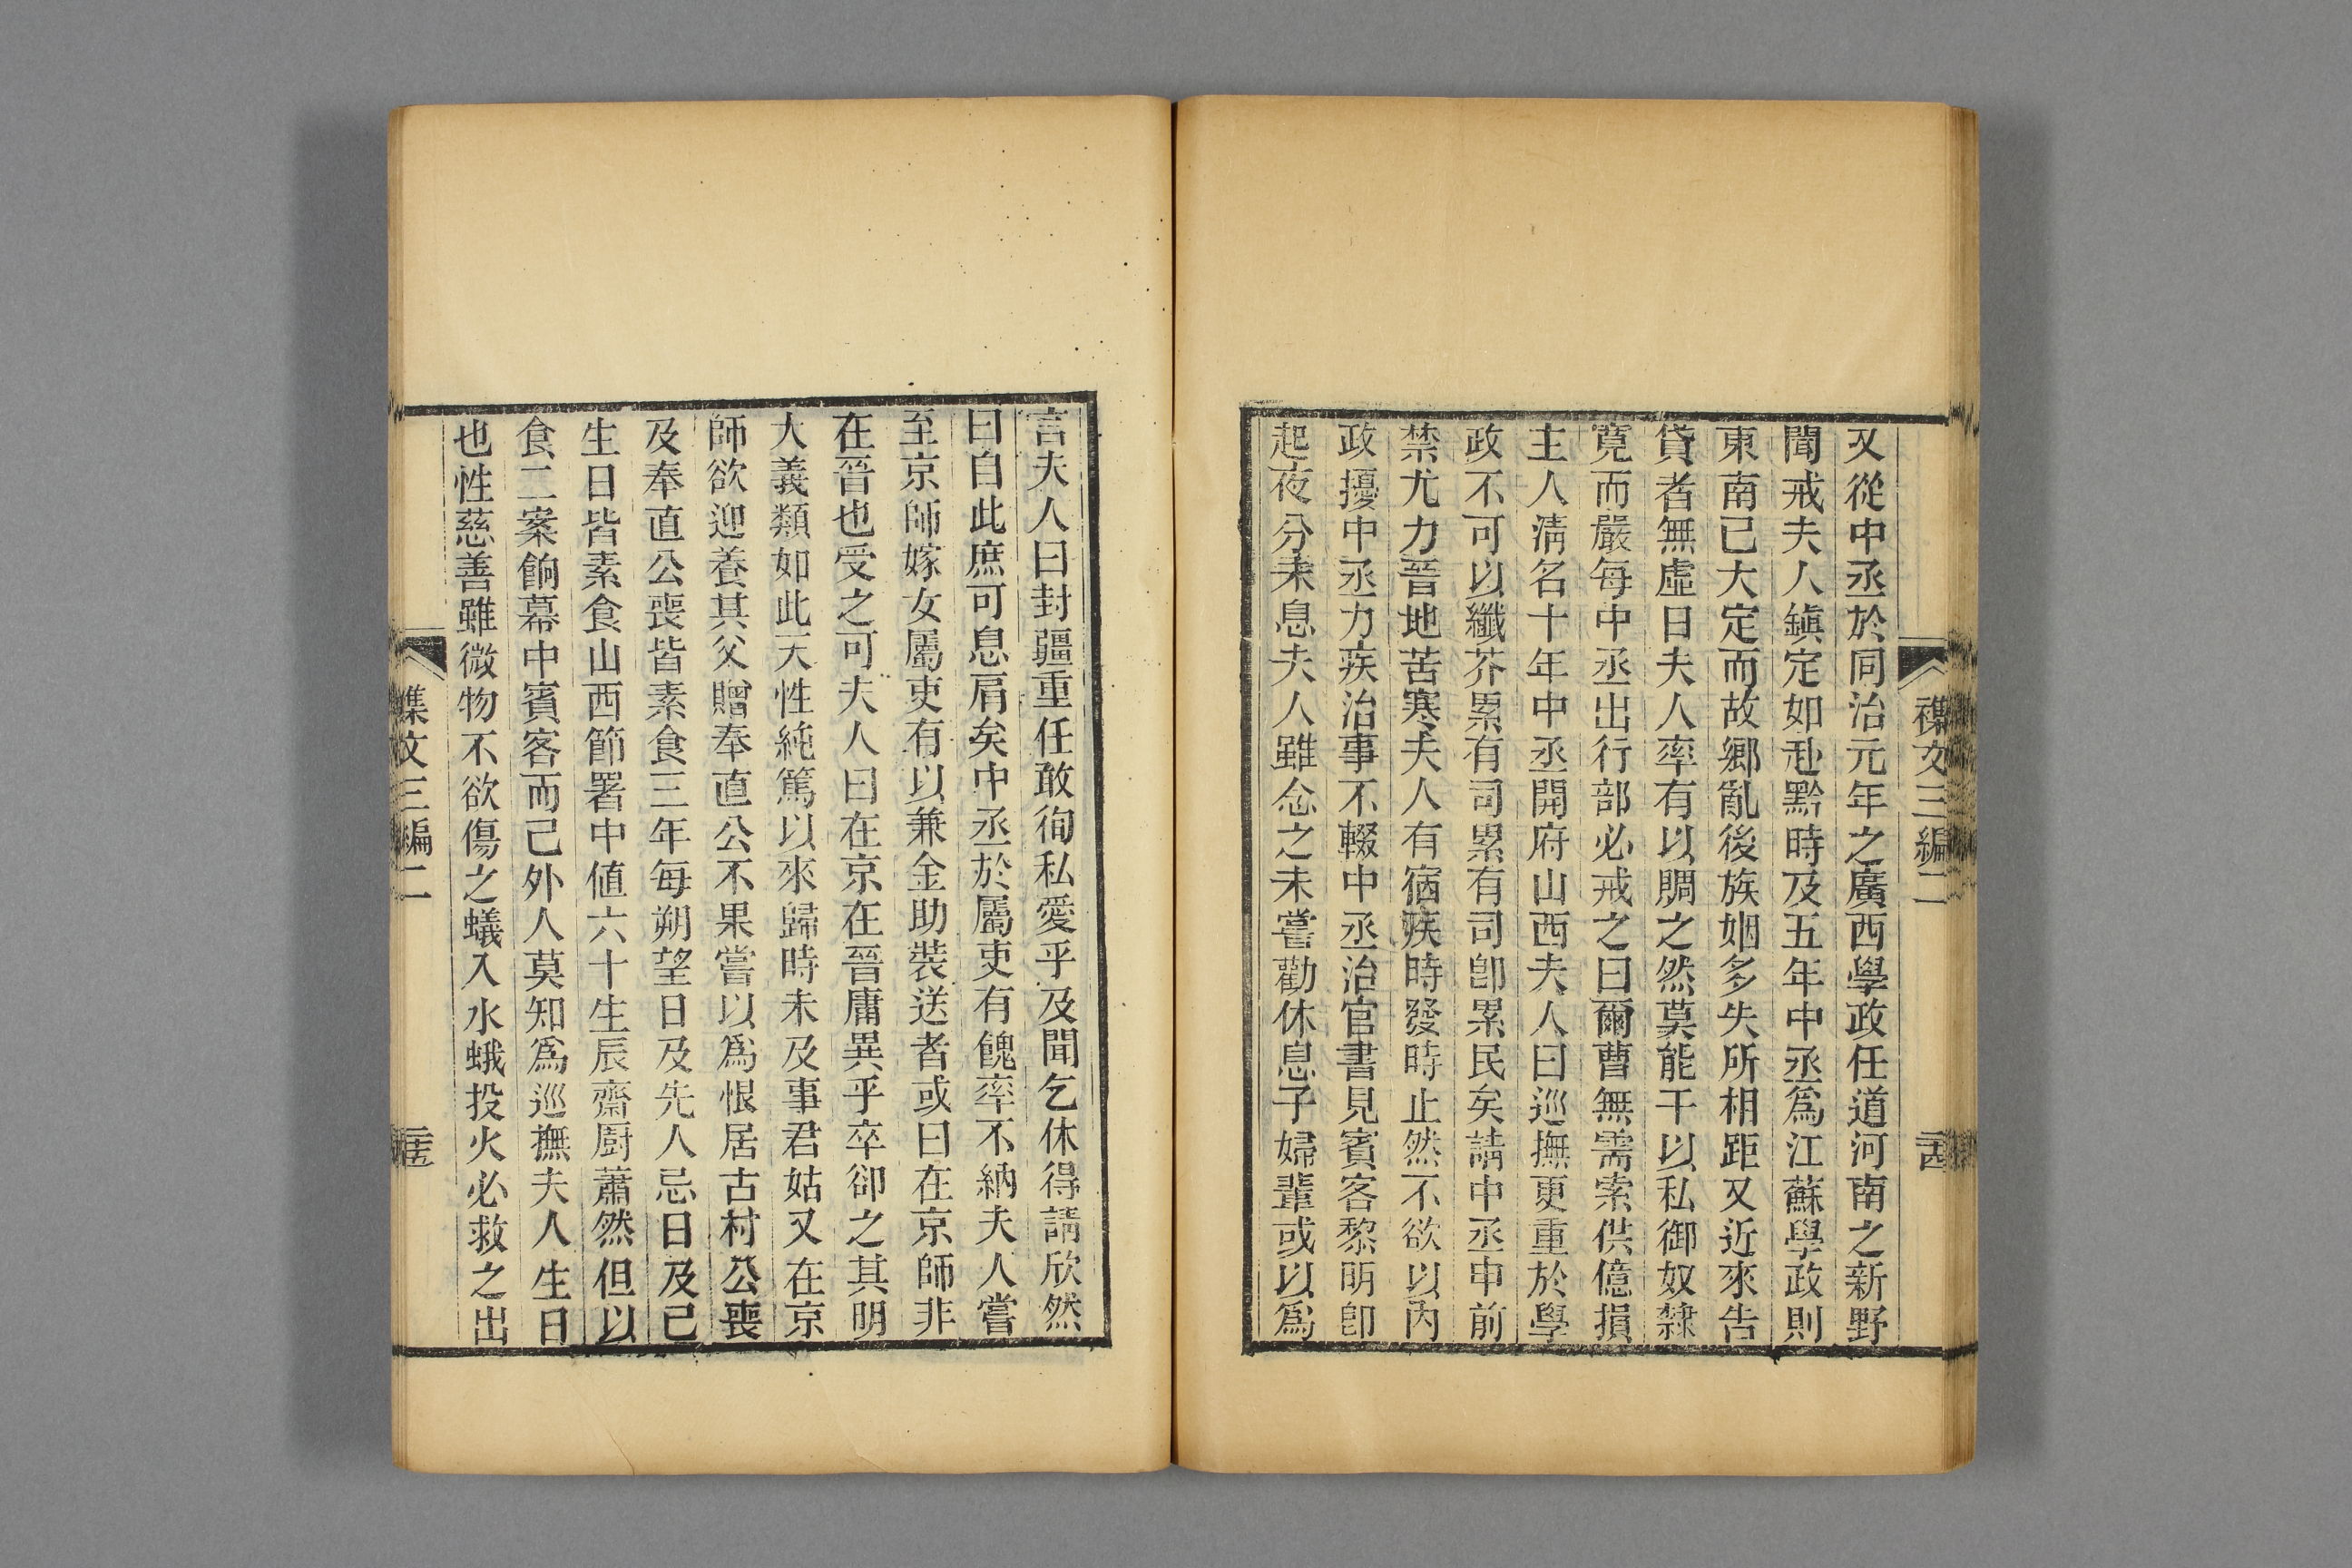 又從中丞於同治元年之廣西學政任道河南之新野
聞戒夫人鎭定如赴黔時及五年中丞爲江蘇學政則
東南已大定而故鄉亂後族姻多失所相距又近來告
貸者無虛日夫人率有以賙之然莫能干以私御奴隸
寬而嚴每中丞出行部必戒之曰爾曹無需索供億損
主人淸名十年中丞開府山西夫人曰巡撫更重於學
政不可以纖芥累有司累有司卽累民矣請中丞申前
禁尤力晉地苦寒夫人有宿疾時發時止然不欲以內
政擾中丞力疾治事不輟中丞治官書見賓客黎明卽
起夜分未息夫人雖念之未嘗勸休息子婦輩或以爲
襍文三編二
言夫人曰封疆重任敢徇私愛乎及聞乞休得請欣然
曰自此庶可息肩矣中丞於屬吏有餽率不納夫人嘗
至京師嫁女屬吏有以兼金助裝送者或曰在京師非
在晉也受之可夫人曰在京在晉庸異乎卒卻之其明
大義類如此天性純篤以來歸時未及事君姑又在京
師欲迎養其父贈奉直公不果嘗以爲恨居古村公喪
及奉直公喪皆素食三年每朔望日及先人忌日及己
生日皆素食山西節署中値六十生辰齋廚蕭然但以
食二案餉幕中賓客而已外人莫知爲巡撫夫人生日
也性慈善雖微物不欲傷之蟻入水蛾投火必救之出
襍文三編二